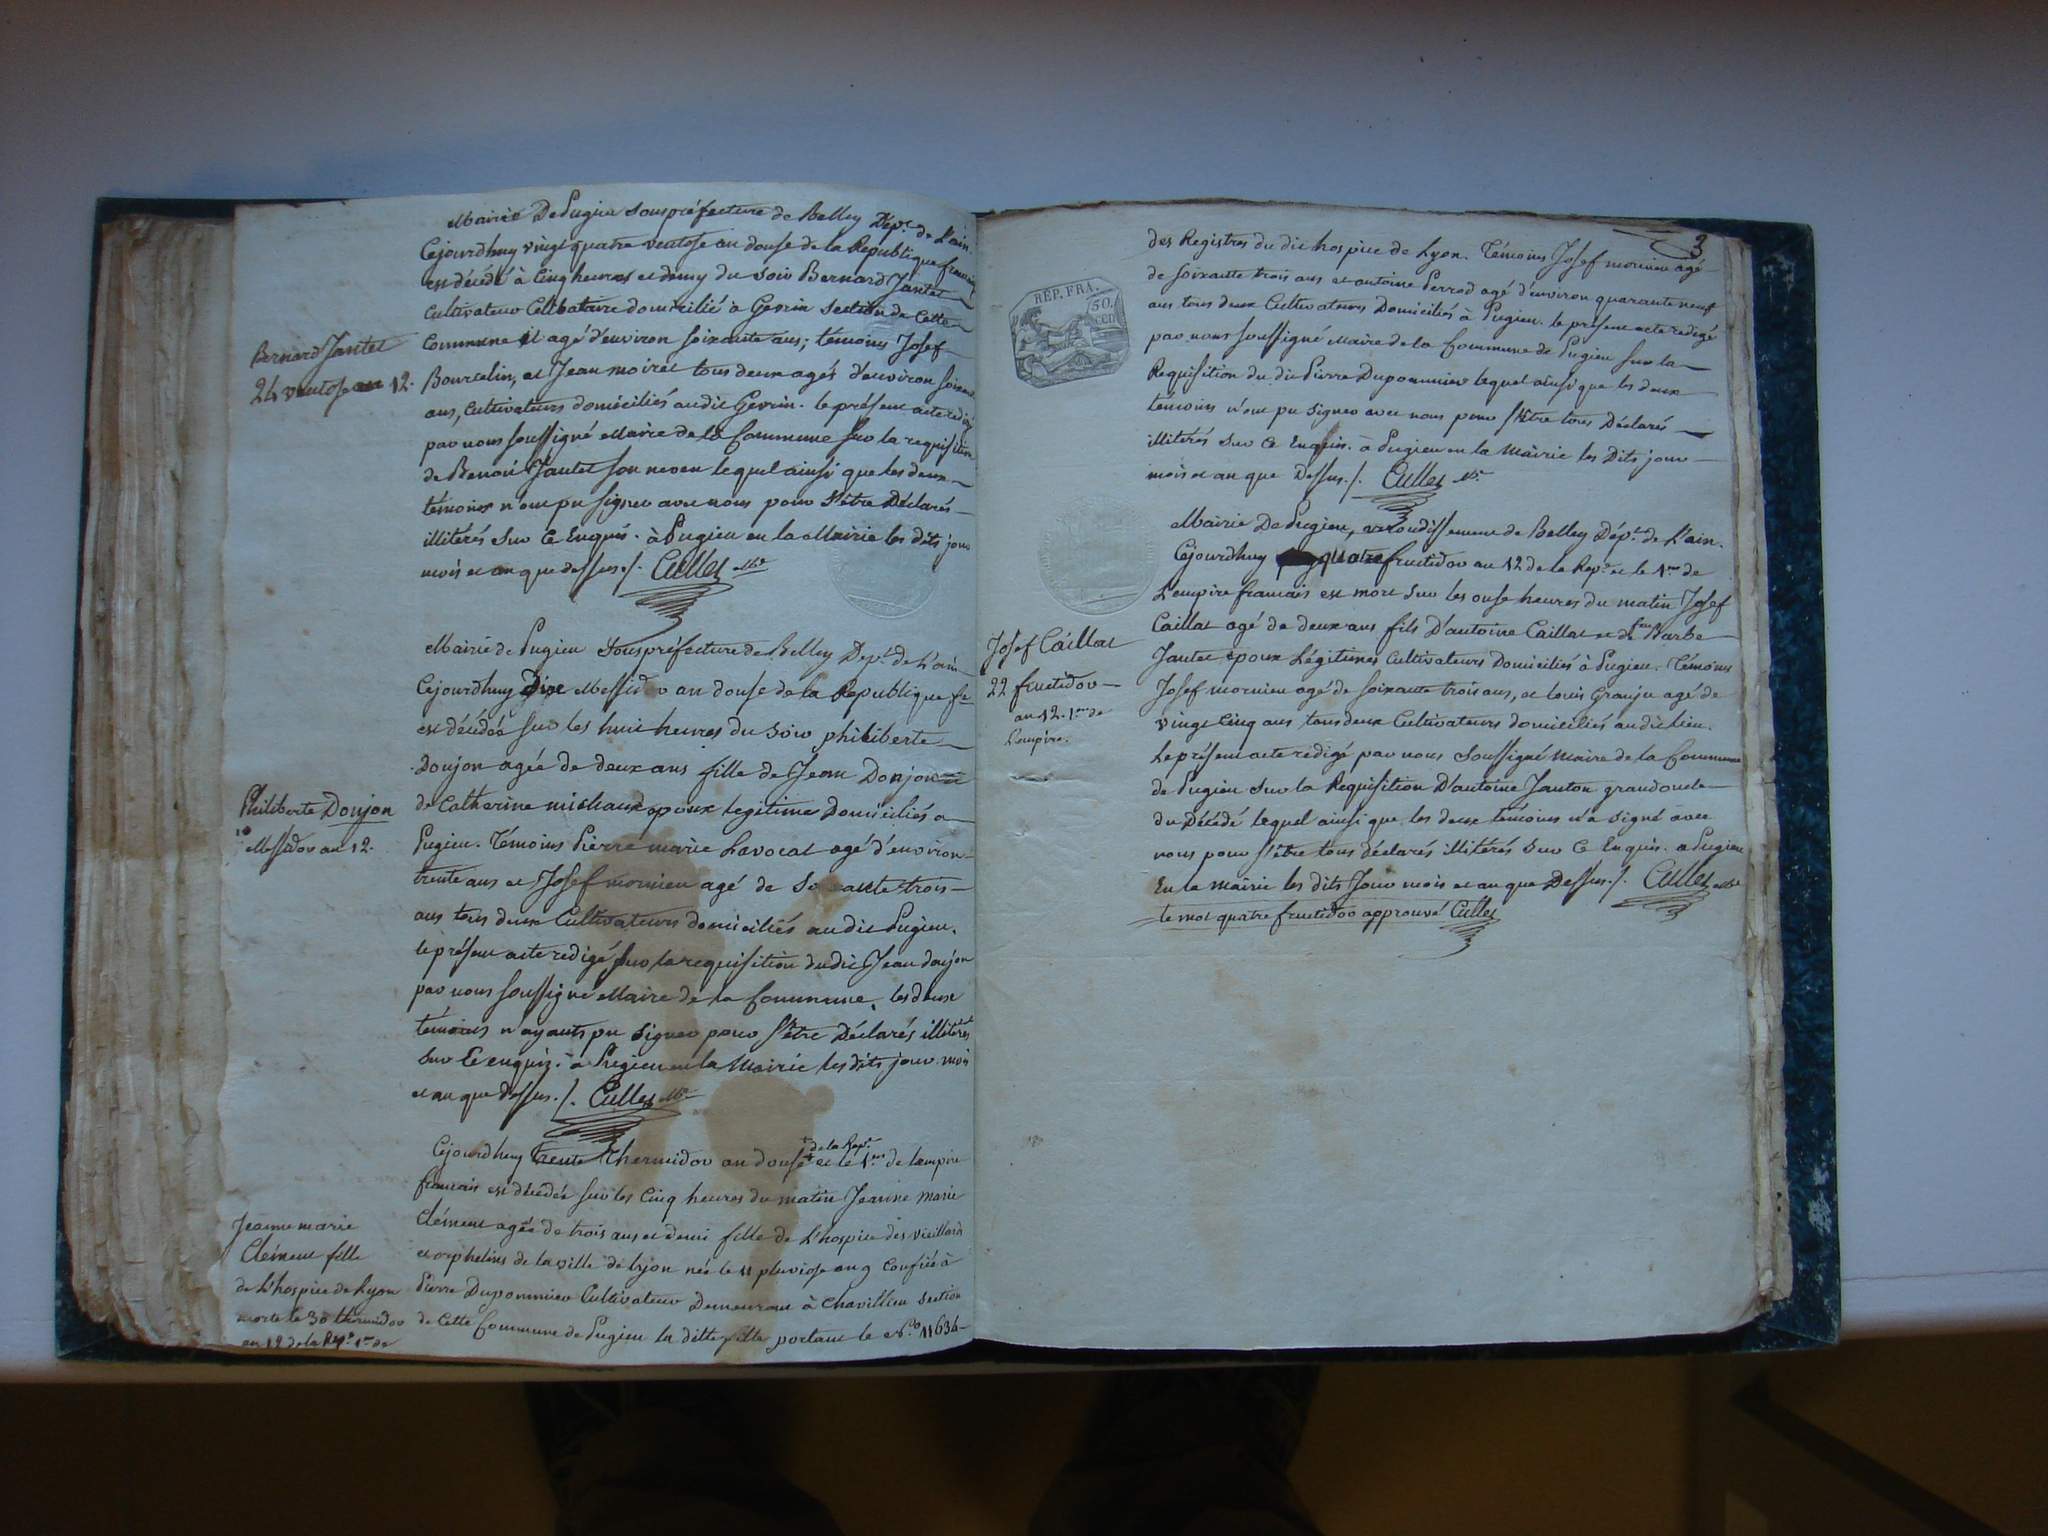 Mairie De Pugieu Souspréfecture de Belley Dépt. de L'ain.
Cejourdhuy vingt quatre ventose an douse de la Republique francaise
est décédé à Cinq heures et demy du soir Bernard Jantet
Cultivateur Celibataire domicilié à Gevrin Section de Cette
Bernard Jantet
24 ventose an 12.
Commune et agé d'environ soixante ans; temoins Josef
Bourcelin, et Jean moiret tous deux agés d'environ soixante
ans, Cultivateurs domiciliés audit Gevrin. le présent acte redigé
par nous soussigné Maire de la Commune sur la requisition
de Benoit Jantet son neveu lequel ainsi que les deux
témoins n'ont pu signer avec nous pour s'être Déclarés
illitérés Sur Ce Enquis. à Pugieu en la Mairie les dits jour
mois et an que dessus./. Cullet Mre
Mairie de Pugieu Souspréfecture de Belley Dépt. de L'ain
Cejourdhuy Dix Messidor an douse de la Republique fse
est décédée sur les huit heures du soir philiberte
Donjon agée de deux ans fille de Jean Donjon et
Philiberte Donjon
10
Messidor an 12.
de Catherine michaud epoux legitime Domiciliés a
Pugieu. Témoins Pierre marie Lavocat agé d'environ
trente ans et Josef mornieu agé de Soixante trois
ans tous deux Cultivateurs domiciliés audit Pugieu.
le présent acte redigé sur la requisition dudit Jean donjon
par nous soussigné Maire de la Commune, les deux
témoins n'ayants pu signer pour s'être Déclarés illiterés
sur Ce enquis. à Pugieu en la Mairie les dits jour mois
et an que dessus./. Cullet Mre
Cejourdhuy trente thermidor an douse de la Rep. et le 1er de l'empire
francais est décédée sur les Cinq heures du matin Jeanne marie
Clément agée de trois ans et demi fille de L'hospice des vieillards
et orphelins de la ville de lyon née le 11 pluviose an 9 Confiée à
Pierre Dupommier Cultivateur Demeurant à Chavillieu Section
de Cette Commune de Pugieu la ditte fille portant le N.o 11634
Jeanne marie
Clément fille
de L'hospice de Lyon
morte le 30 thermidor
an 12 de la Rep. 1er de
3
des Registres du dit hospice de Lyon. Témoins Josef mornieu agé
de soixante trois ans et antoine Perrod agé d'environ quarante neuf
REP. FRA.
50.
CEN
ans tous deux Cultivateurs Domiciliés à Pugieu. le présent acte redigé
par nous soussigné Maire de la Commune de Pugieu sur la
Requisition du dit Pierre Dupommier lequel ainsi que les deux
témoins n'ont pu signer avec nous pour s'être tous Déclarés
illiterés sur Ce Enquis. à Pugieu en la Mairie les Dits jour
mois et an que Dessus./. Cullet Mre
Mairie De Pugieu, arrondissement de Belley Dépt. de L'ain.
Cejourdhuy quatre fructidor an 12 de la Rep. et le 1er de
L'empire francais est mort Sur les onse heures du matin Josef
Caillat agé de deux ans fils D'antoine Caillat et de Barbe
Josef Caillat
22 fructidor
an 12. 1er de
L'empire.
Jantet epoux Légitimes Cultivateurs Domiciliés à Pugieu. Témoins
Josef mornieu agé de soixante trois ans, et louis Granju agé de
vingt Cinq ans tous deux Cultivateurs domiciliés audit lieu.
Le présent acte redigé par nous Soussigné Maire de la Commune
de Pugieu sur la Requisition D'antoine Janton grandoncle
du Décédé lequel ainsi que les deux témoins n'a signé avec
nous pour s'être tous déclarés illitérés sur Ce Enquis. a Pugieu
En la Mairie les dits Jour mois et an que Dessus./. Cullet Mre
le mot quatre fructidor approuvé Cullet